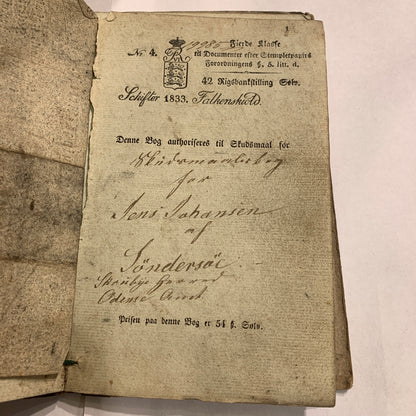 19985
Fierde Klasse
№ 4. til Documenter efter Stempelpapirs
Forordningens §. 5. litt. d.
42 Rigsbankskilling Sølv.
Schifter 1833. Falkenskiold.
Denne Bog authoriseres til Skudsmaal for
Skudsmaalsbog
for
Jens Johansen
af
Søndersøe
Skoubye Herred
Odense Amt
Prisen paa denne Bog er 54 ß. Sølv.